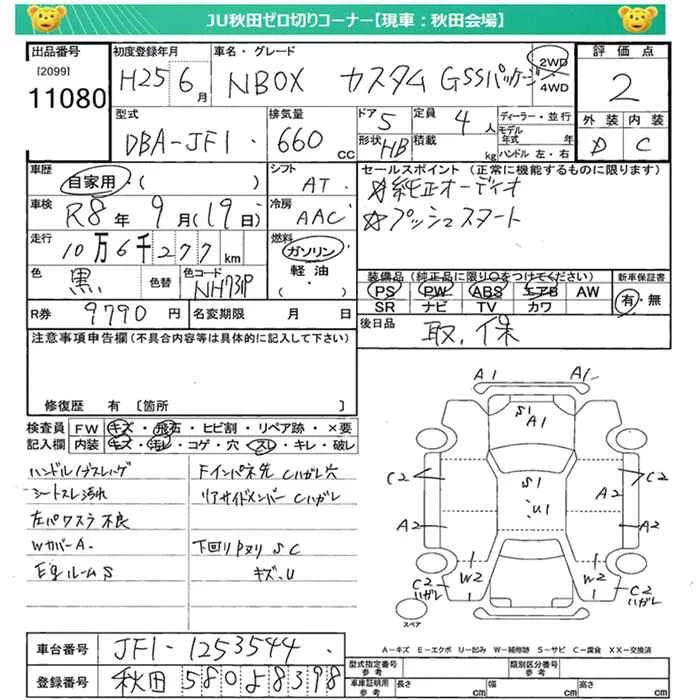 JU秋田ゼロ切りコーナー【現車：秋田会場】
出品番号 初度登録年月 車名・グレード 評価点
[2099]
11080
H25 6月 NBOX カスタム GSSパッケージ 2WD 4WD
2
型式 排気量 ドア 定員 ディーラー・並行
DBA-JF1 660 CC 5 4人
形状 HB 積載 kg モデル年式 年
ハンドル 左・右
外装 内装
D C
車歴 シフト セールスポイント（正常に機能するものに限ります）
自家用・( ) AT ☆純正オーディオ
車検 冷房 ☆プッシュスタート
R8年 9月(19日) AAC
走行 燃料
10万6千277km ガソリン
軽油
・( )
色 色替 色コード
黒 NH731P
装備品（純正品に限り○をつけてください） 新車保証書
PS PW ABS エアB AW 有・無
SR ナビ TV カワ
R券 9790円 名変期限 月 日
後日品 取、保
注意事項申告欄（不具合内容等は具体的に記入して下さい）
修復歴 有 〔箇所 〕
検査員 FW キズ・飛石・ヒビ割・リペア跡・×要
記入欄 内装 キズ・汚レ・コゲ・穴・スレ・キレ・破レ
シートスレ汚れ
左パワスラ不良
WカバーA.
EgルームS
Fインパネ先 Cハガレ穴
リアサイドメンバー Cハガレ
下回りPヌリ S C
キズ、U
A1 A1
S1
A1
C2 C2
S1
A2
U1
A2 A2
W2 W2
C2
ハガレ
C2
ハガレ
スペア
A－キズ E－エクボ U－凹み W－補修跡 S－サビ C－腐食 XX－交換済
車台番号 JF1-1253544
登録番号 秋田 580よ8398
型式指定番号 参考 類別区分番号
車庫証明用 参考 長さ cm 幅 cm 高さ cm